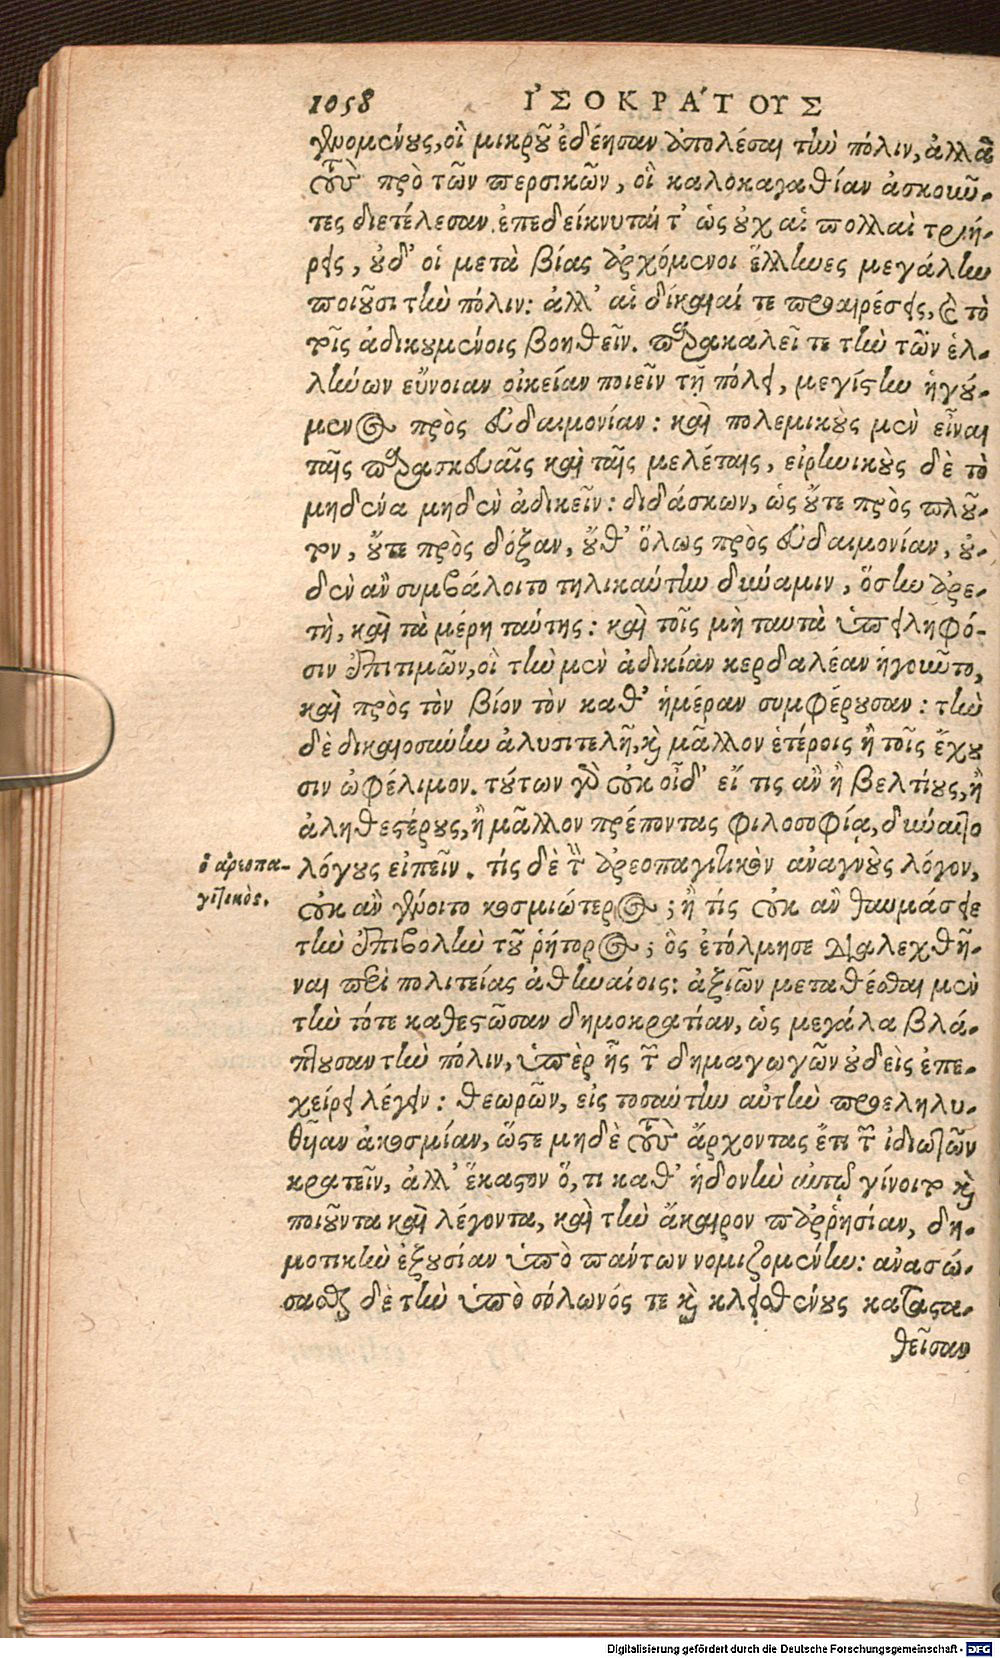 1058 ἸΣΟΚΡΆΤΟΥΣ
γενομένους, οἳ μικροῦ ἐδέησαν ἀπολέσαι τὴν πόλιν, ἀλλὰ
τοὺς πρὸ τῶν περσικῶν, οἳ καλοκαγαθίαν ἀσκοῦν-
τες διετέλεσαν. ἐπεδείκνυταί τ' ὡς οὐχ αἱ πολλαὶ τριή-
ρεις, οὐδ' οἱ μετὰ βίας ἀρχόμενοι ἕλληνες μεγάλην
ποιοῦσι τὴν πόλιν: ἀλλ' αἱ δίκαιαί τε προαιρέσεις, καὶ τὸ
τοῖς ἀδικουμένοις βοηθεῖν. παρακαλεῖ τε τὴν τῶν ἑλ-
λήνων εὔνοιαν οἰκείαν ποιεῖν τῇ πόλει, μεγίστην ἡγού-
μενος πρὸς εὐδαιμονίαν: καὶ πολεμικοὺς μὲν εἶναι
ταῖς παρασκευαῖς καὶ ταῖς μελέταις, εἰρηνικοὺς δὲ τὸ
μηδένα μηδὲν ἀδικεῖν: διδάσκων, ὡς οὔτε πρὸς πλοῦ-
τον, οὔτε πρὸς δόξαν, οὔθ' ὅλως πρὸς εὐδαιμονίαν, οὐ-
δὲν ἂν συμβάλοιτο τηλικαύτην δύναμιν, ὅσην ἀρε-
τὴ, καὶ τὰ μέρη ταύτης: καὶ τοῖς μὴ ταυτὰ ὑπειληφό-
σιν ἐπιτιμῶν, οἳ τὴν μὲν ἀδικίαν κερδαλέαν ἡγοῦντο,
καὶ πρὸς τὸν βίον τὸν καθ' ἡμέραν συμφέρουσαν: τὴν
δὲ δικαιοσύνην ἀλυσιτελῆ, καὶ μᾶλλον ἑτέροις ἢ τοῖς ἔχου
σιν ὠφέλιμον. τούτων γὰρ οὐκ οἶδ' εἴ τις ἂν ἢ βελτίους, ἢ
ἀληθεστέρους, ἢ μᾶλλον πρέποντας φιλοσοφίᾳ, δύναιτο
ὁ ἀρεοπα- λόγους εἰπεῖν. τίς δὲ τὸν ἀρεοπαγιτικὸν ἀναγνοὺς λόγον,
γιτικὸς. οὐκ ἂν γένοιτο κοσμιώτερος; ἢ τίς οὐκ ἂν θαυμάσειε
τὴν ἐπιβολὴν τοῦ ῥήτορος; ὃς ἐτόλμησε διαλεχθῆ-
ναι περὶ πολιτείας ἀθηναίοις: ἀξιῶν μεταθέσθαι μὲν
τὴν τότε καθεστῶσαν δημοκρατίαν, ὡς μεγάλα βλά-
πτουσαν τὴν πόλιν, ὑπὲρ ἧς τῶν δημαγωγῶν οὐδεὶς ἐπε-
χείρει λέγειν: θεωρῶν, εἰς τοσαύτην αὐτὴν προεληλυ-
θυῖαν ἀκοσμίαν, ὥστε μηδὲ τοὺς ἄρχοντας ἔτι τῶν ἰδιωτῶν
κρατεῖν, ἀλλ' ἕκαστον ὅ, τι καθ' ἡδονὴν αὐτῷ γίνοιτο καὶ
ποιοῦντα καὶ λέγοντα, καὶ τὴν ἄκαιρον παρρησίαν, δη-
μοτικὴν ἐξουσίαν ὑπὸ πάντων νομιζομένην: ἀνασώ-
σασθαι δὲ τὴν ὑπὸ σόλωνός τε καὶ κλεισθένους καταστα-
θεῖσαν
Digitalisierung gefördert durch die Deutsche Forschungsgemeinschaft - DFG